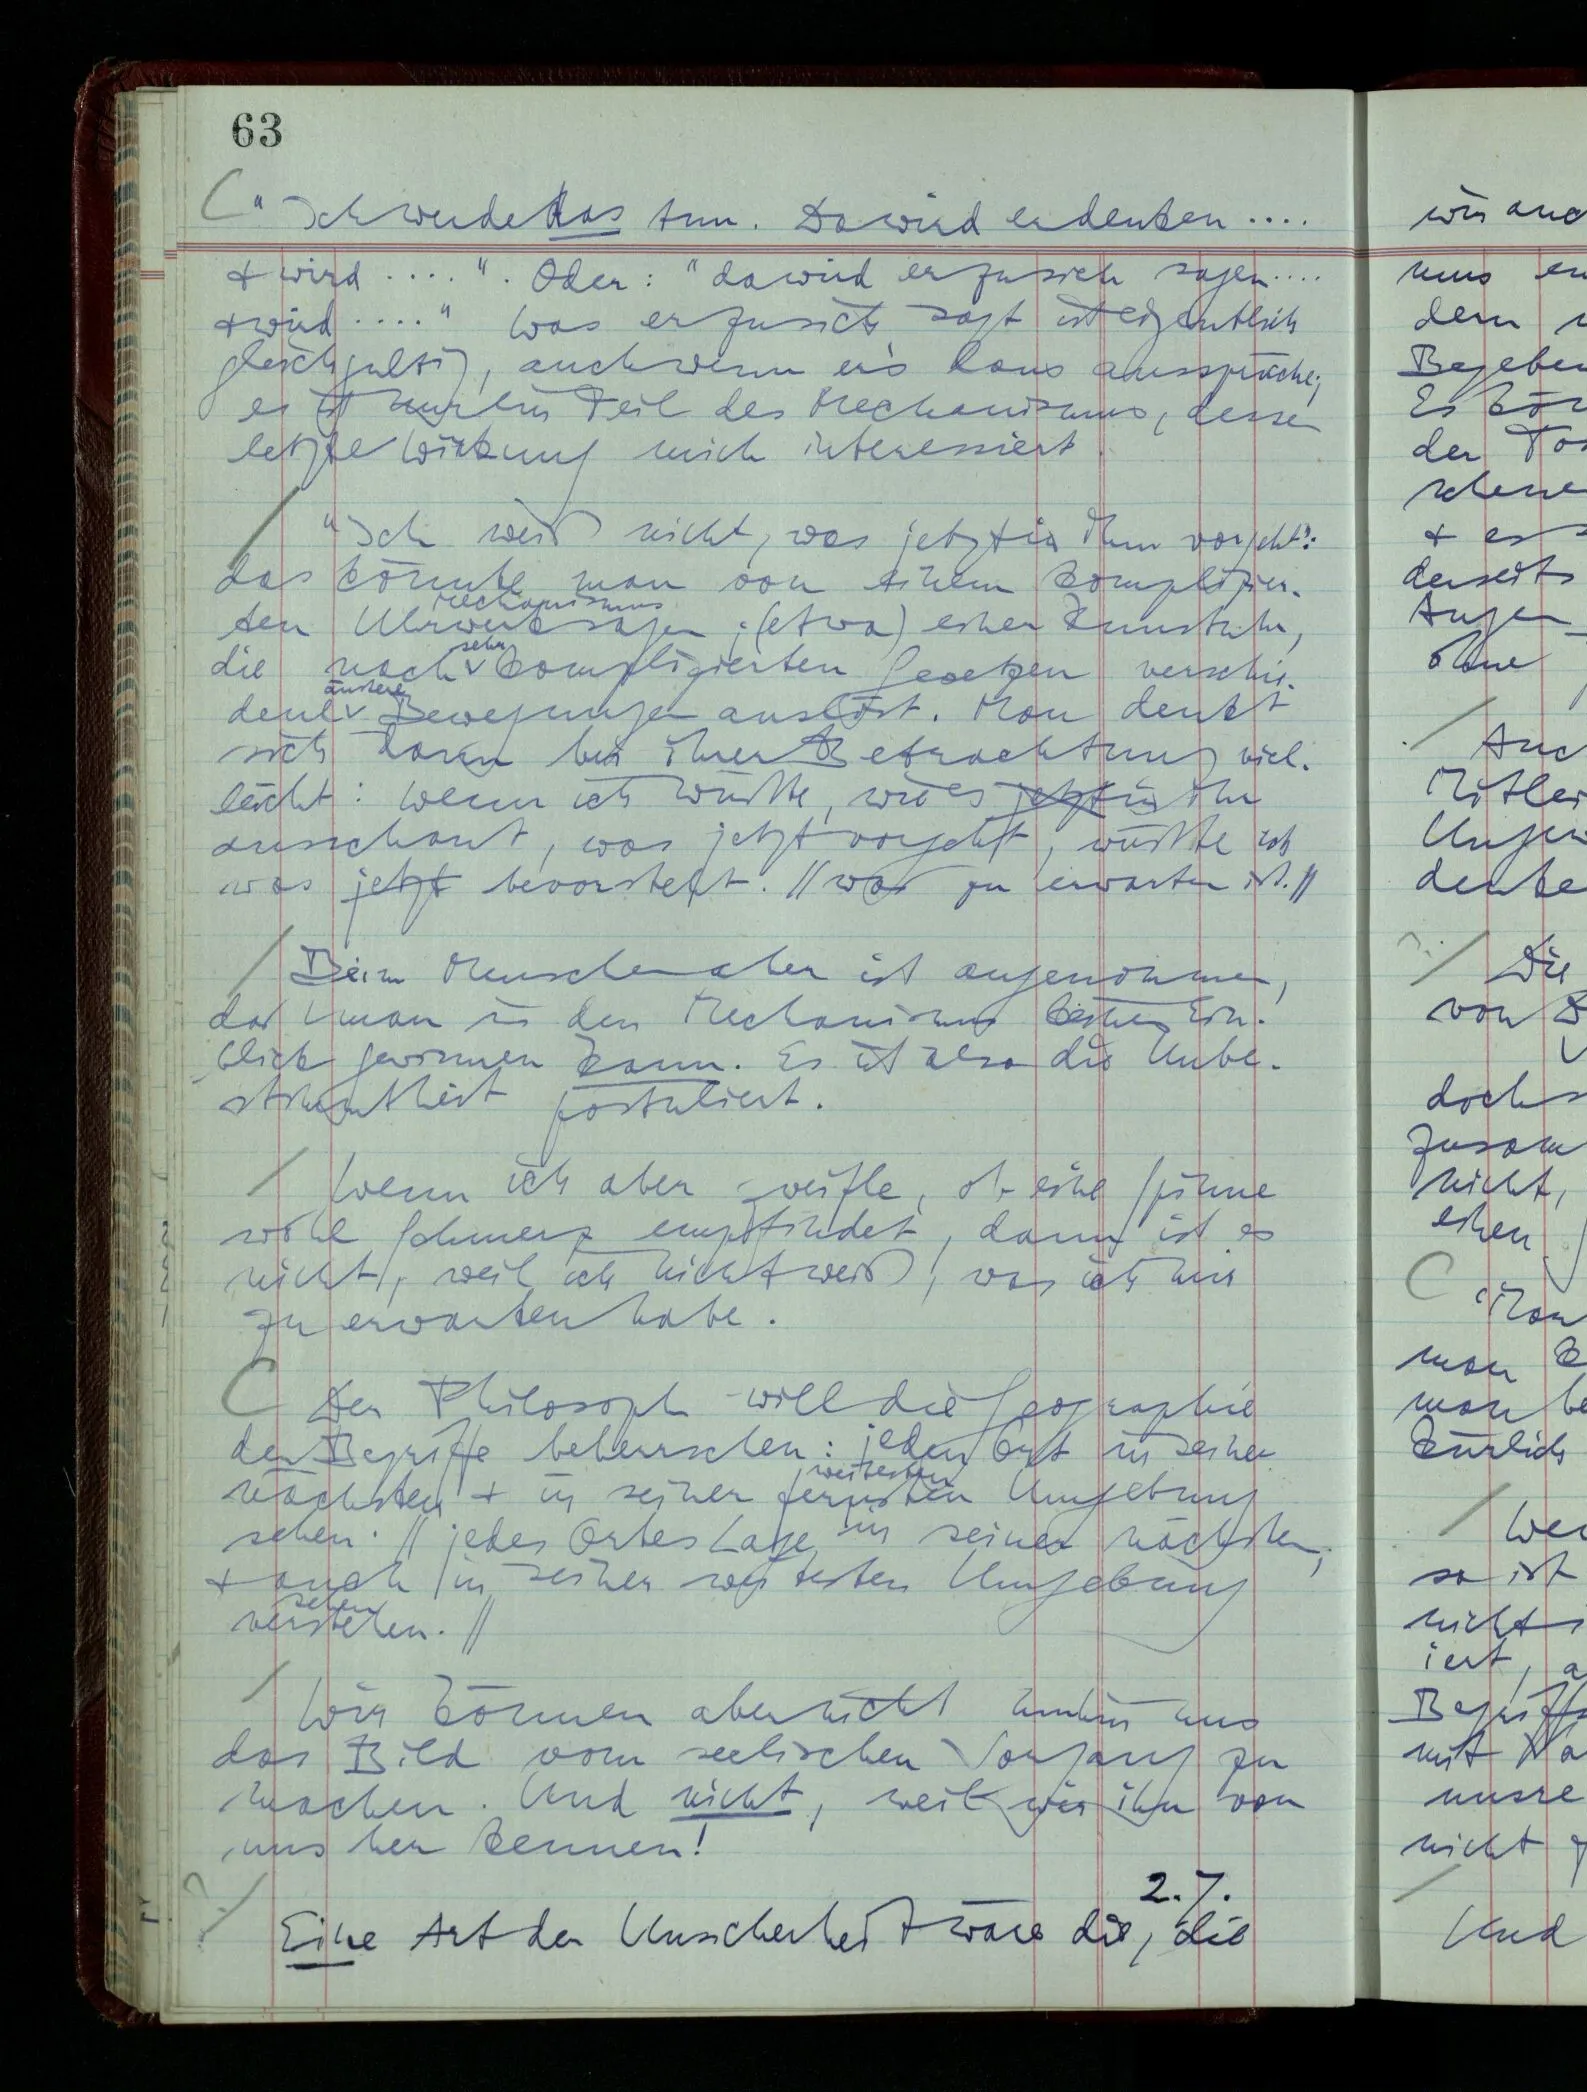 63
"Ich werde das tun. Da wird er denken ....
& wird ....". Oder: "da wird er zu sich sagen ....
& wird ...." Was er zu sich sagt ist eigentlich
gleichgültig, auch wenn er's laut ausspräche;
es ist nur ein Teil des Mechanismus, dessen
letzte Wirkung mich interessiert.
"Ich weiß nicht, was jetzt in ihm vorgeht":
das könnte man von einem komplizier-
mechanismus
ten Uhrwerk sagen; (etwa) einer Kunstuhr,
sehr
die nach komplizierten Gesetzen verschie-
äussere
dene Bewegungen auslöst. Man denkt
sich dann bei ihrer Betrachtung viel-
leicht: wenn ich wüßte, wie es jetzt in ihr
ausschaut, was jetzt vorgeht, wüßte ich
was jetzt bevorsteht. // was zu erwarten ist. //
Beim Menschen aber ist angenommen,
daß man in den Mechanismus keinen Ein-
blick gewinnen kann. Es ist also die Unbe-
stimmtheit postuliert.
Wenn ich aber zweifle, ob eine Spinne
wohl Schmerz empfindet, dann ist es
nicht, weil ich nicht weiß, was ich mir
zu erwarten habe.
Der Philosoph will die Geographie
der Begriffe beherrschen: jeden Ort in seiner
weitesten
nächsten & in seiner fernsten Umgebung
sehen. // jedes Ortes Lage in seiner nächsten,
& auch in seiner weitesten Umgebung
sehen
verstehen. //
Wir können aber nicht umhin uns
das Bild vom seelischen Vorgang zu
machen. Und nicht, weil wir ihn von
uns her kennen!
2.7.
Eine Art der Unsicherheit wäre die, die
wir auc
uns
dem
Begeben
Es
der
& es
derseits
Augen
ohne
Auch
Mitlei
denke
Die
von
doch
zusam
nicht,
einen
"Man
man
man be
kürlich
We
so ist
nicht
iert, a
Begriffs
mit
unsre
nicht
Und